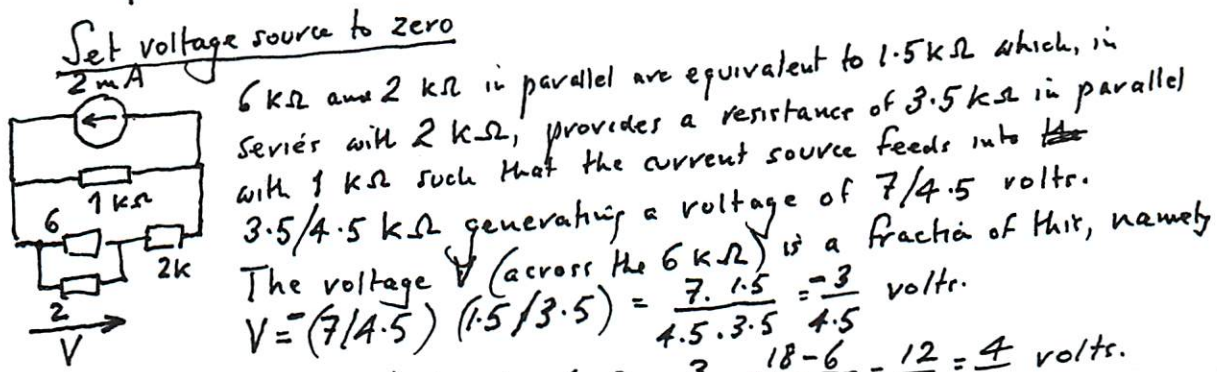 Set voltage source to zero
2 mA
6 kΩ and 2 kΩ in parallel are equivalent to 1.5 kΩ which, in
series with 2 kΩ, provides a resistance of 3.5 kΩ in parallel
with 1 kΩ such that the current source feeds into
3.5/4.5 kΩ generating a voltage of 7/4.5 volts.
The voltage V (across the 6 kΩ) is a fraction of this, namely
V = -(7/4.5) (1.5/3.5) = 7. 1.5 / 4.5 . 3.5 = -3 / 4.5 volts.
1 kΩ
6
2k
2
V
3 18-6 = 12 = 4 volts.